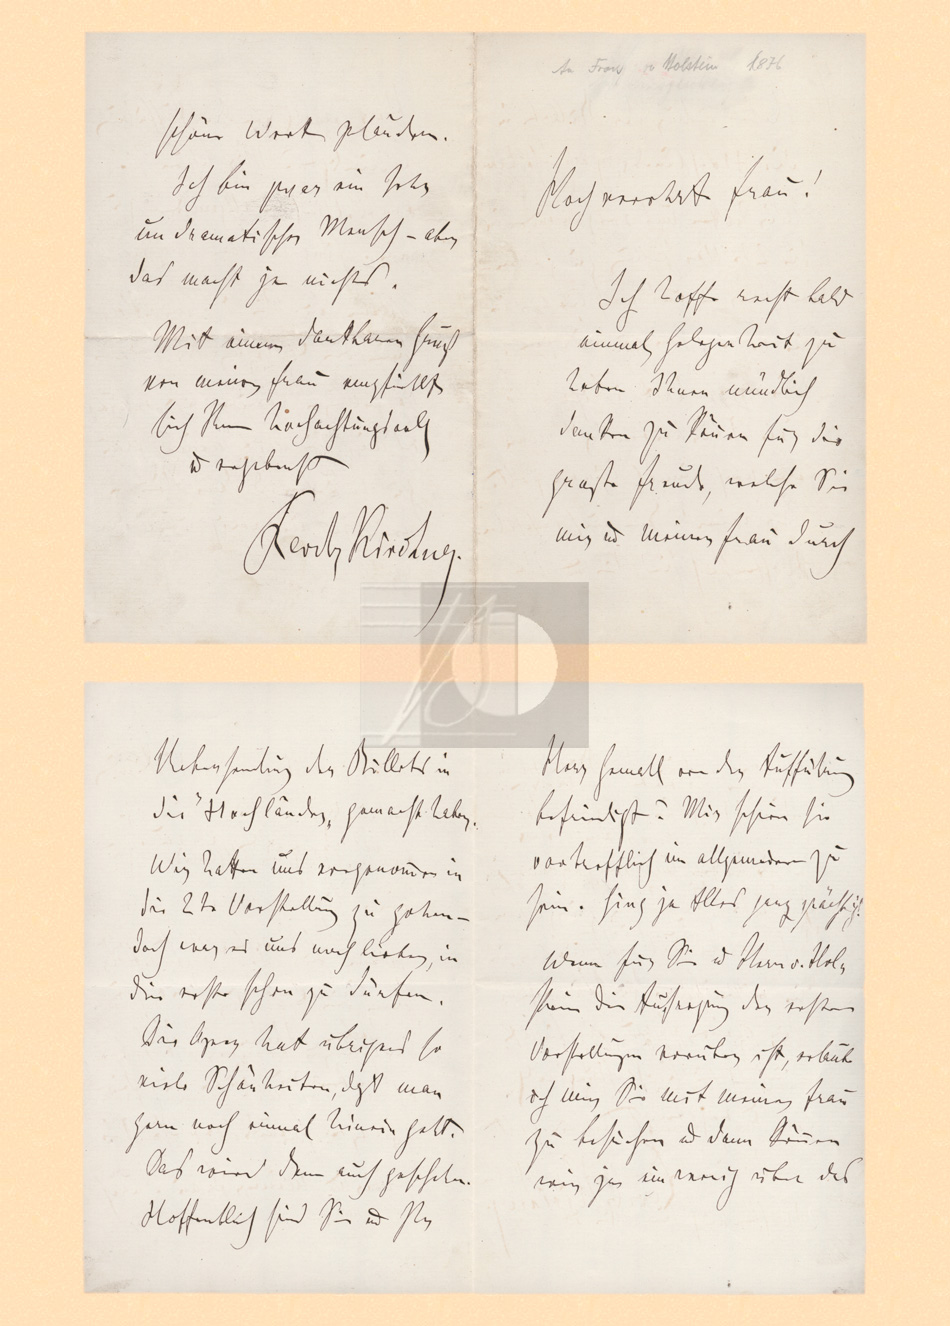 An Frau v Holstein 1876
Hochverehrte Frau!
Ich hoffe recht bald
einmal Gelegenheit zu
haben Ihnen mündlich
danken zu können für die
große Freude, welche Sie
mir u meiner Frau durch
Uebersendung der Billets in
die "Hochländer" gemacht haben.
Wir hatten uns vorgenommen in
die 2te Vorstellung zu gehen –
doch war es uns noch lieber, in
die erste schon zu dürfen.
Die Oper hat übrigens so
viele Schönheiten, daß man
gern noch einmal hinein geht.
Das wird denn auch geschehen.
Hoffentlich sind Sie u Ihr
Herr Gemahl von der Aufführung
befriedigt? Mir schien sie
vortrefflich im allgemeinen zu
sein. Ging ja Alles ganz prächtig.
Wenn für Sie u Herrn v. Hol-
stein die Aufregung der ersten
Vorstellungen vorüber ist, erlaube
ich mir, Sie mit meiner Frau
zu besuchen u dann können
wir ja ein wenig über das
schöne Werk plaudern.
Ich bin zwar ein sehr
undramatischer Mensch – aber
das macht ja nichts.
Mit einem dankbaren Gruß
von meiner Frau empfiehlt
sich Ihnen hochachtungsvoll
u ergebenst
Theodor Kirchner.